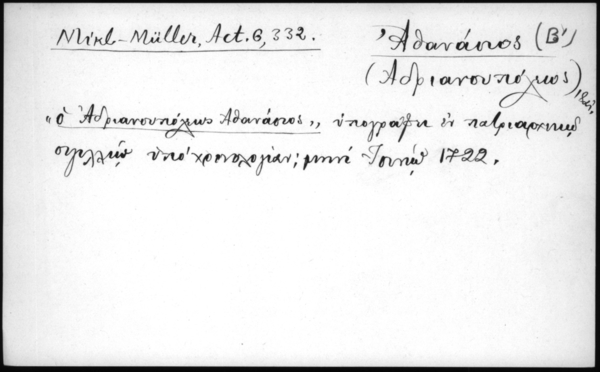 Mikl-Müller, Act. 6, 332.
Ἀθανάσιος (Β')
(Ἀδριανουπόλεως)
"ὁ Ἀδριανουπόλεως Ἀθανάσιος,, ὑπογράφει ἐν πατριαρχικῷ
σιγιλλίῳ ὑπὸ χρονολογίαν; μηνὶ Ἰουνίῳ 1722.